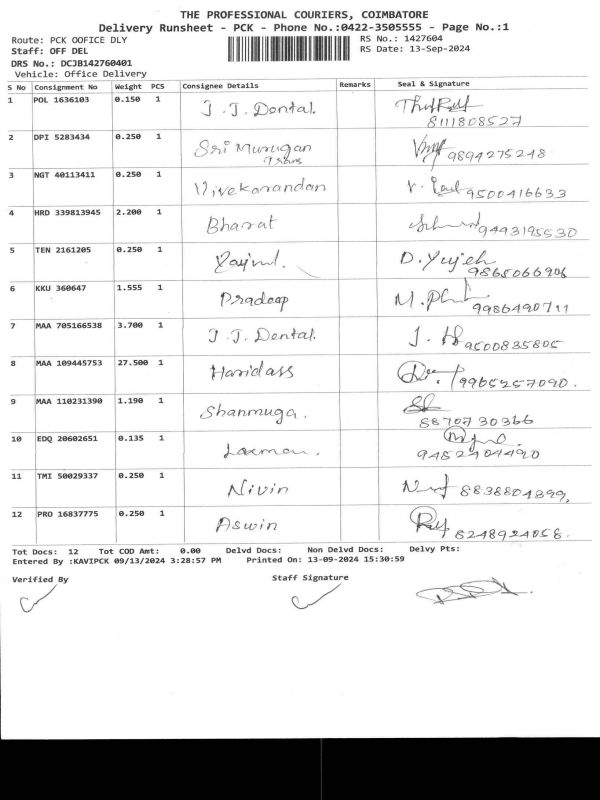 THE PROFESSIONAL COURIERS, COIMBATORE
Delivery Runsheet - PCK - Phone No.:0422-3505555 - Page No.:1
Route: PCK OOFICE DLY RS No.: 1427604
Staff: OFF DEL RS Date: 13-Sep-2024
DRS No.: DCJB142760401
Vehicle: Office Delivery
S No Consignment No Weight PCS Consignee Details Remarks Seal & Signature
1 POL 1636103 0.150 1 J. J. Dental. 8111808527
2 DPI 5283434 0.250 1 Sri Murugan Trans 9894275248
3 NGT 40113411 0.250 1 Vivekanandan 9500416633
4 HRD 339813945 2.200 1 Bharat 9443195530
5 TEN 2161205 0.250 1 D. 9865066906
6 KKU 360647 1.555 1 Pradeep M. 9986490711
7 MAA 705166538 3.700 1 J. J. Dental. J. 9500835805
8 MAA 109445753 27.500 1 Haridass 9965257090.
9 MAA 110231390 1.190 1 Shanmuga. 8870730366
10 EDQ 20602651 0.135 1 Laxman. 9452404490
11 TMI 50029337 0.250 1 Nivin 8838804899,
12 PRO 16837775 0.250 1 Aswin 8248924058.
Tot Docs: 12 Tot COD Amt: 0.00 Delvd Docs: Non Delvd Docs: Delvy Pts:
Entered By :KAVIPCK 09/13/2024 3:28:57 PM Printed On: 13-09-2024 15:30:59
Verified By Staff Signature